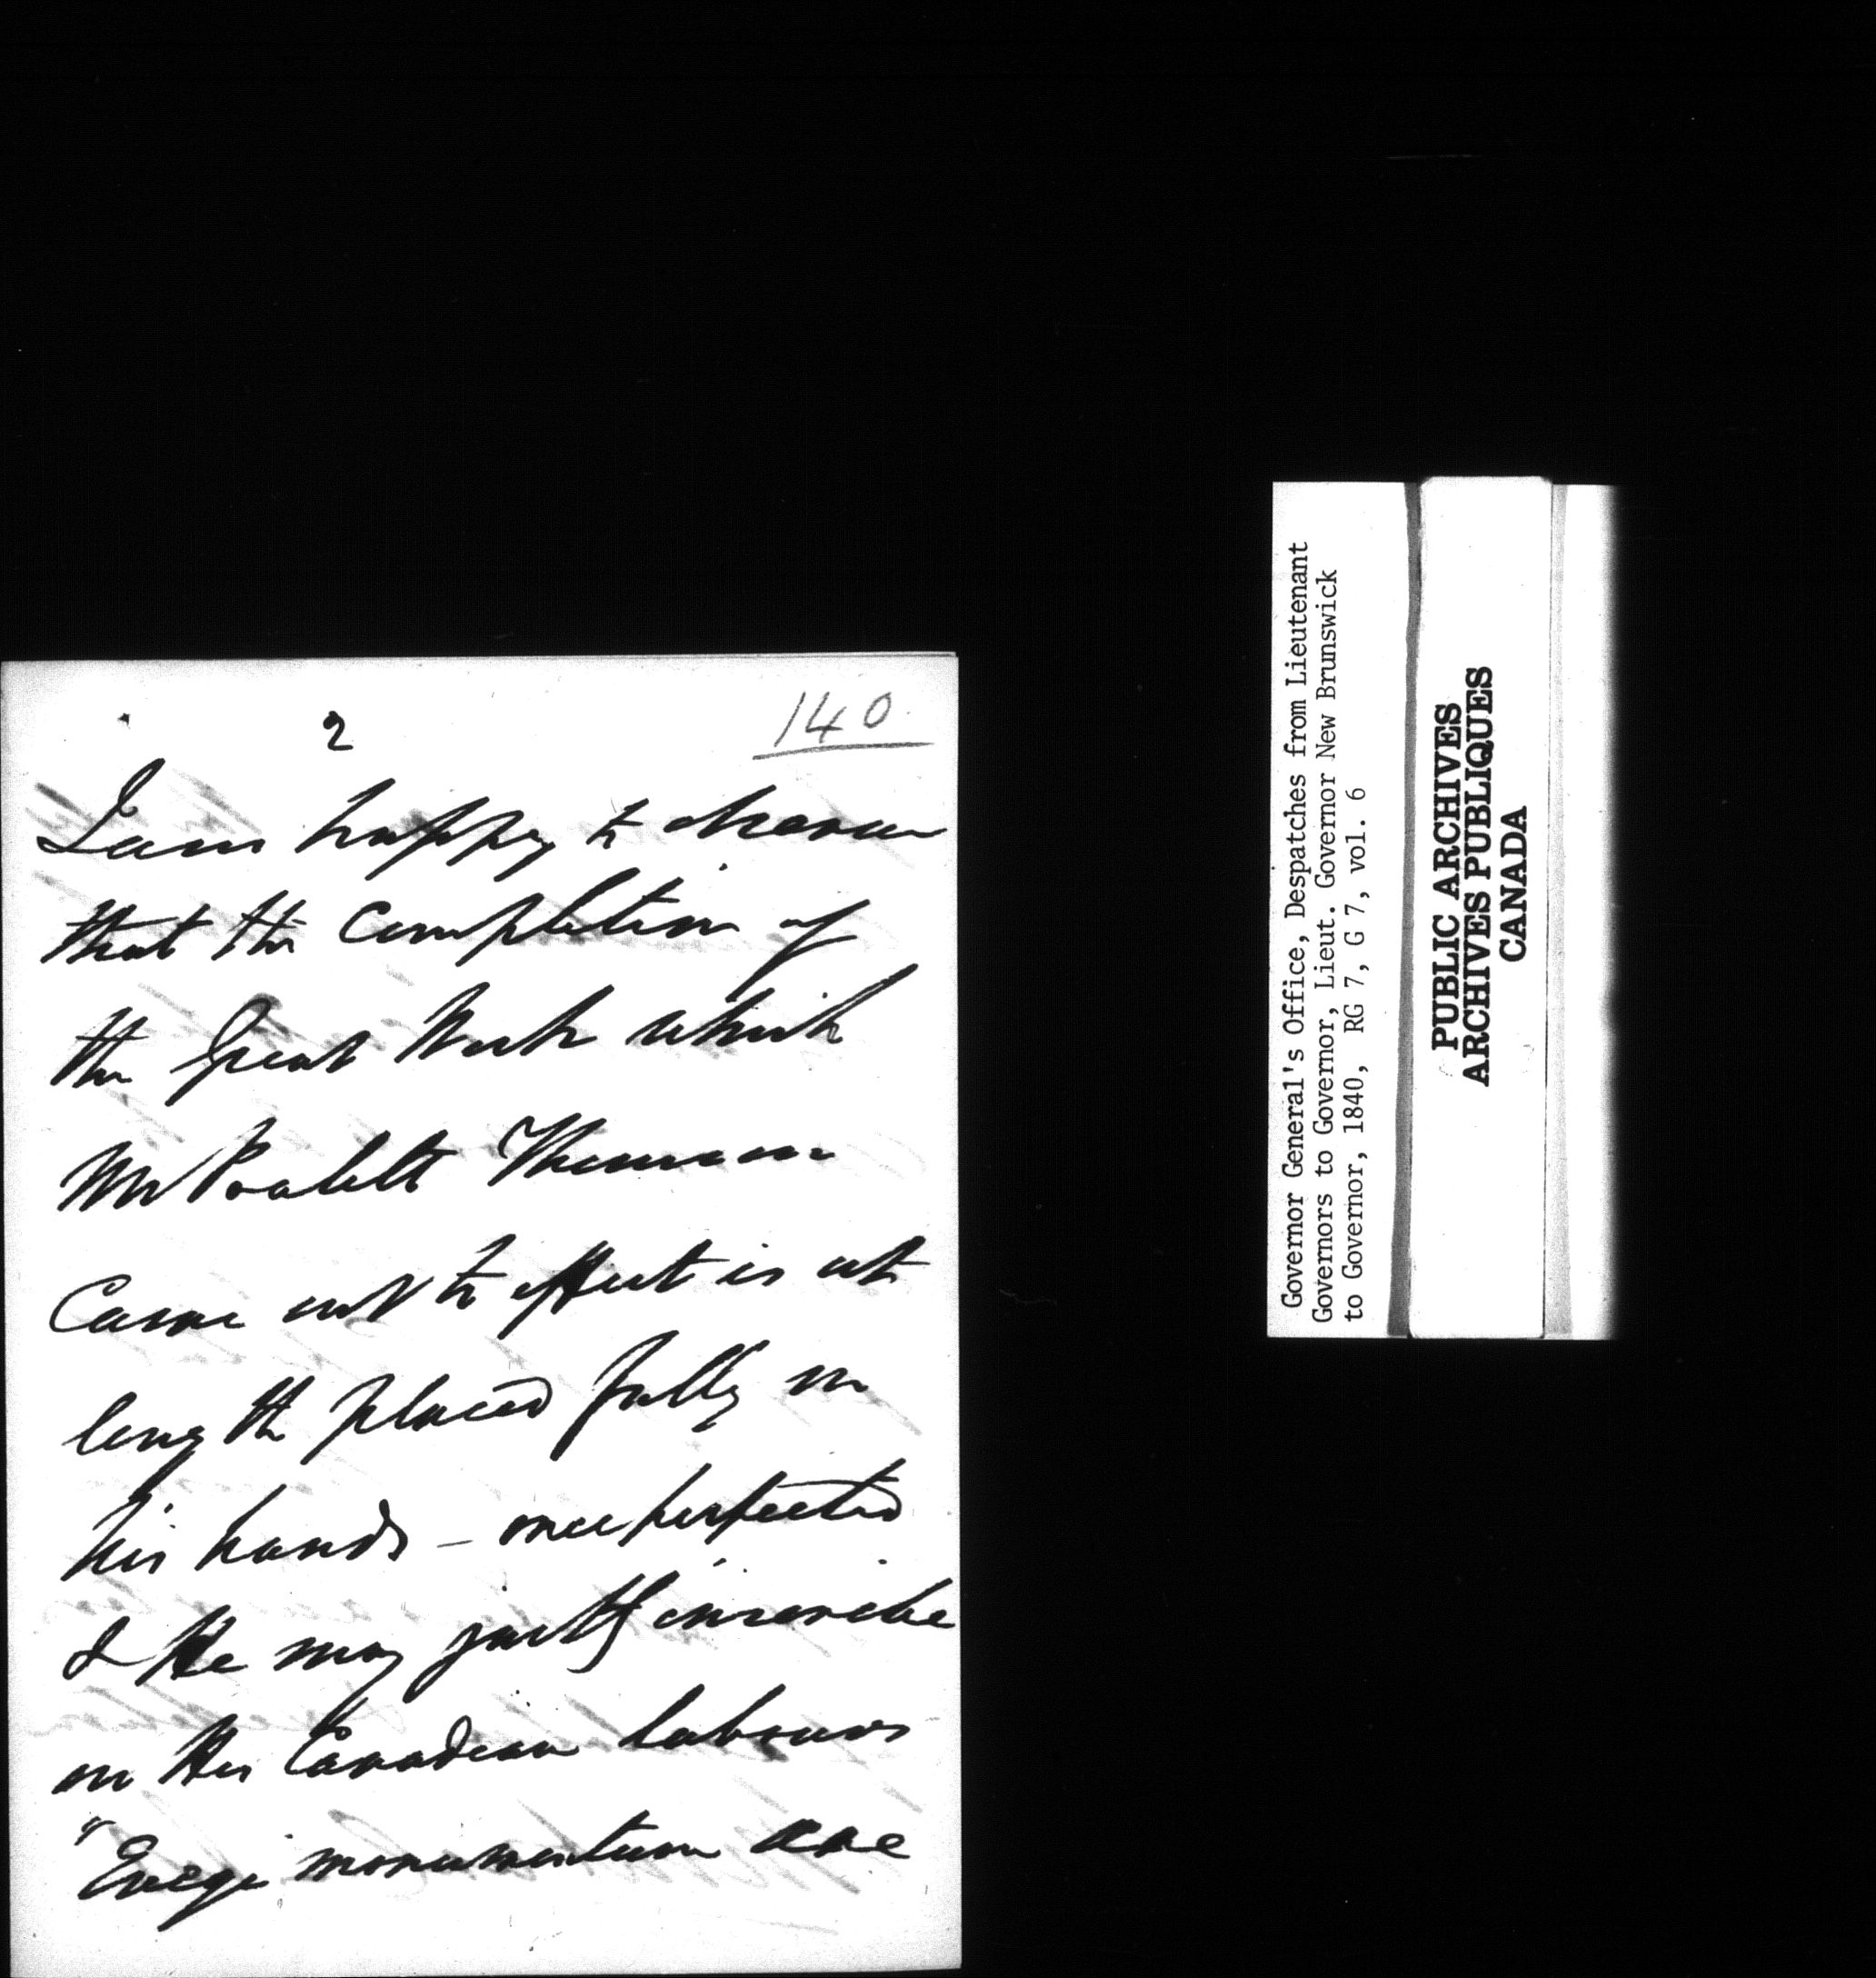 2
140
I am happy to observe
that the Completion of
the great Work which
Mr Poulett Thomson
Came out to effect is at
length placed fully in
his hands - once perfected
& He may justly inscribe
on His Canadian labours
"Exegi monumentum ære
Governor General's Office, Despatches from Lieutenant
Governors to Governor, Lieut. Governor New Brunswick
to Governor, 1840, RG 7, G 7, vol. 6
PUBLIC ARCHIVES
ARCHIVES PUBLIQUES
CANADA